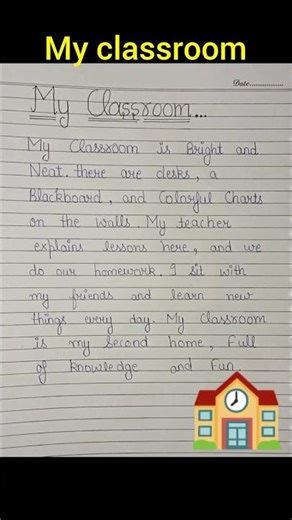 My classroom
Date................
My Classroom...
My Classroom is Bright and
Neat. there are desks, a
Blackboard, and Colorful Charts
on the walls. My teacher
explains lessons here, and we
do our homework. I sit with
my friends and learn new
things every day. My Classroom
is my second home, Full
of knowledge and Fun.